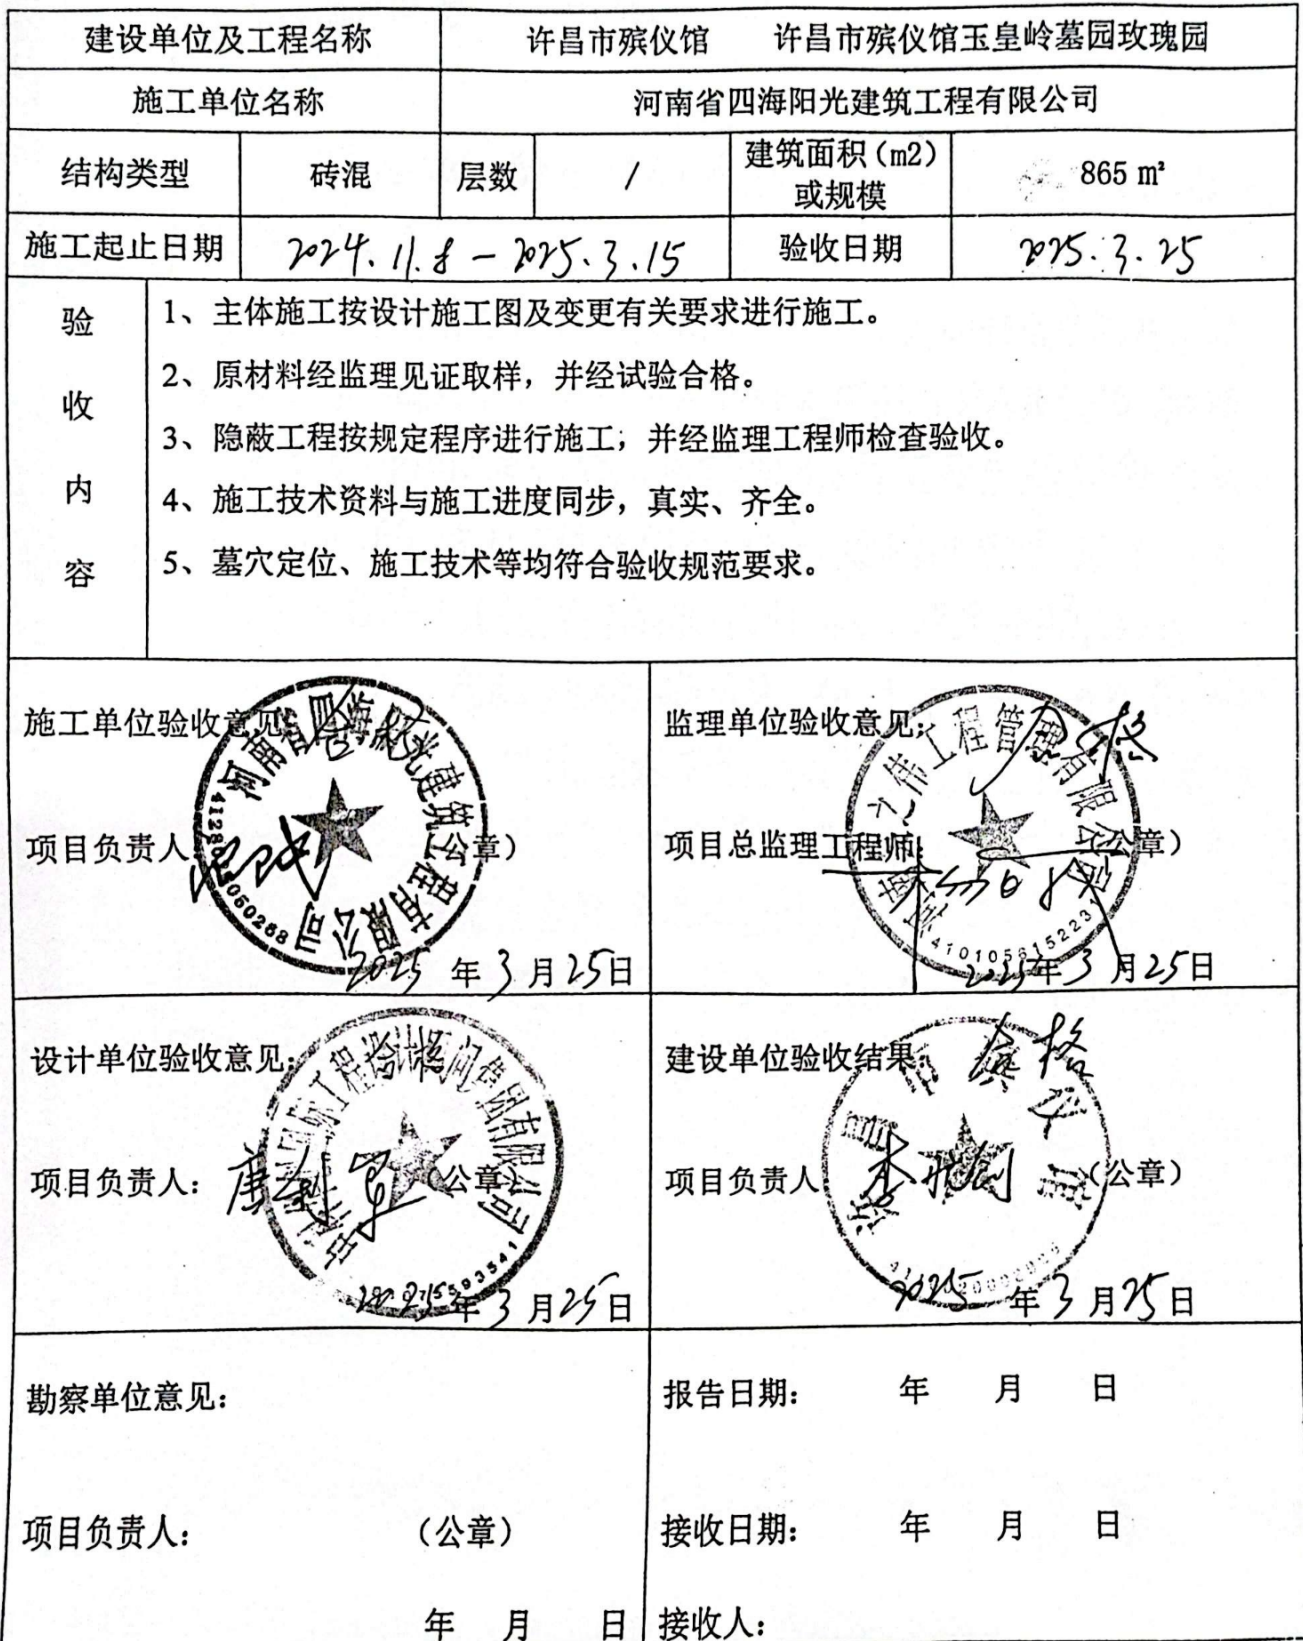 建设单位及工程名称 许昌市殡仪馆 许昌市殡仪馆玉皇岭墓园玫瑰园
施工单位名称 河南省四海阳光建筑工程有限公司
结构类型 砖混 层数 / 建筑面积(m2)或规模 865 m²
施工起止日期 2024.11.8-2025.3.15 验收日期 2025.3.25
验收内容
1、主体施工按设计施工图及变更有关要求进行施工。
2、原材料经监理见证取样，并经试验合格。
3、隐蔽工程按规定程序进行施工，并经监理工程师检查验收。
4、施工技术资料与施工进度同步，真实、齐全。
5、墓穴定位、施工技术等均符合验收规范要求。
施工单位验收意见:
河南省四海阳光建筑工程有限公司
项目负责人 (公章)
2025年3月25日
监理单位验收意见: 合格
工程管理有限公司
项目总监理工程师: 公章)
410105615223
2025年3月25日
设计单位验收意见:
项目负责人: (公章)
2025年3月25日
建设单位验收结果 合格
许昌市殡仪馆
项目负责人 (公章)
2025年3月25日
勘察单位意见:
项目负责人: (公章)
年 月 日
报告日期: 年 月 日
接收日期: 年 月 日
接收人: